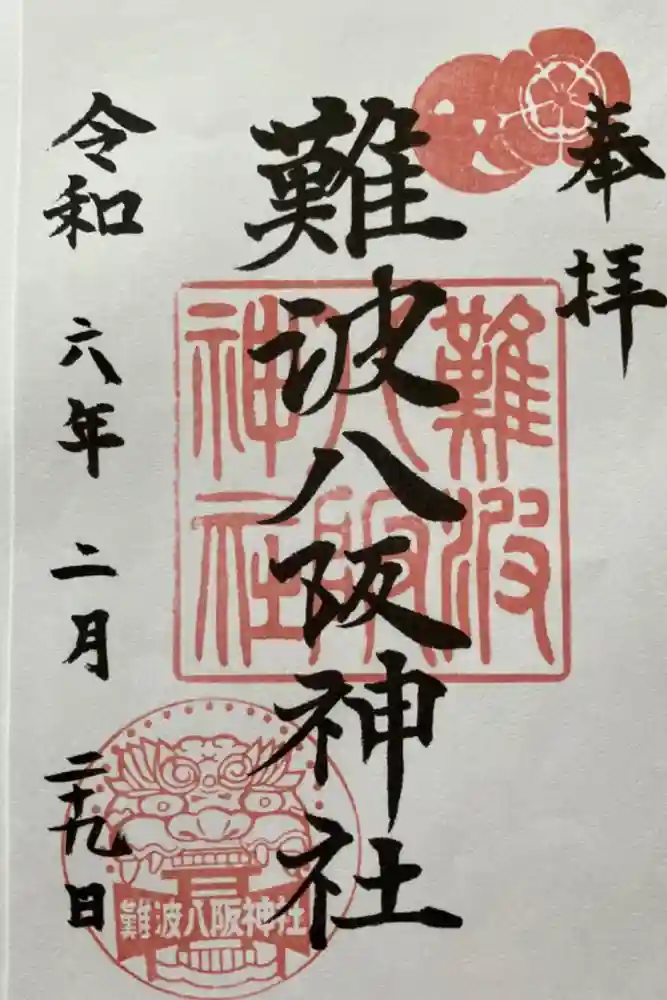 奉拝
難波八阪神社
難波八阪神社
令和 六年 二月 二十九日
難波八阪神社